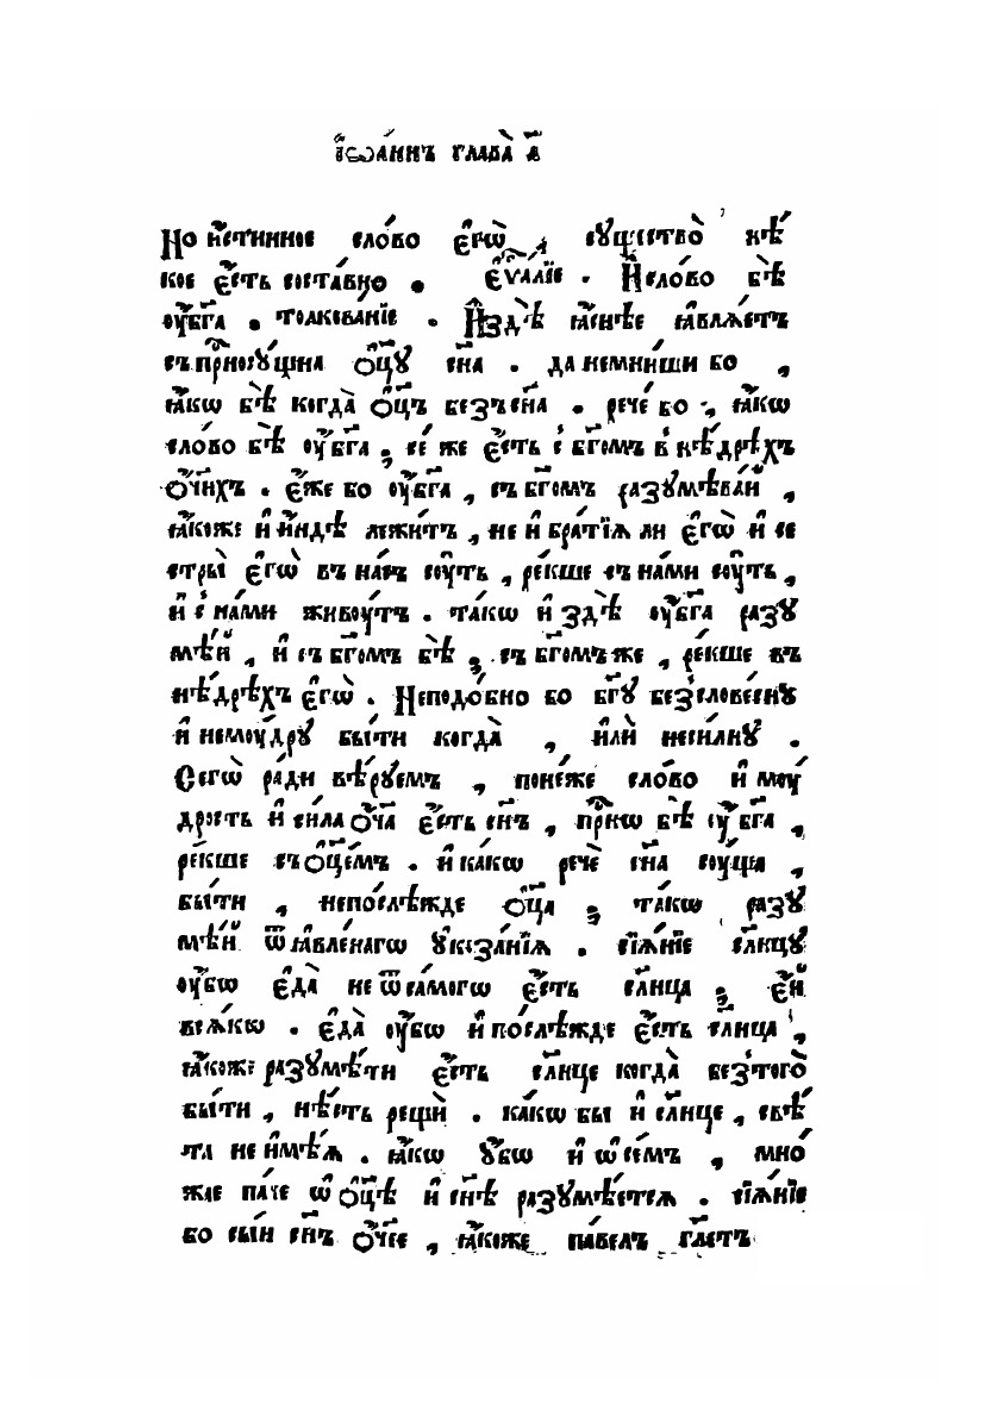 І҆ѡа́ннъ глава̀ а҃
Но и҆́стинное сло́во є҆гѡ̀ сꙋщество̀ нѣ́
кое є҆́сть соста́вно . є҆ѵⷢ҇а́лїе . И҆ сло́во бѣ̀
ᲂу҆ бг҃а . толкова́нїе . И҆ здѣ̀ ꙗ҆́снѣе ꙗ҆вла́ѧетъ
съприⷭ҇носꙋ́щна ѻ҆ц҃ꙋ̀ сн҃а . да немни́ши бо ,
ꙗ҆́кѡ бѣ̀ когда̀ ѻ҆ц҃ъ безъ сн҃а . рече́ бо , ꙗ҆́кѡ
сло́во бѣ̀ ᲂу҆ бг҃а , се́ же є҆́сть с̾ бг҃омъ в̾ нѣ́дрѣхъ
ѻ҆́ч҃ихъ . є҆́же бо ᲂу҆ бг҃а , съ бг҃омъ разꙋмѣва́й ,
ꙗ҆́коже и҆ и҆́ндѣ лежи́тъ , не и҆ бра́тїѧ ли є҆гѡ̀ и҆ се
стры̀ є҆гѡ̀ въ на́съ сꙋ́ть , ре́кше съ на́ми сꙋ́ть ,
и҆ с̾ на́ми живꙋ́тъ . та́кѡ и҆ здѣ̀ ᲂу҆ бг҃а разꙋ
мѣ́й , и҆ съ бг҃омъ бѣ̀ ; съ бг҃омъ же , ре́кше въ
нѣ́дрѣхъ є҆гѡ̀ . Неподо́бно бо бг҃ꙋ без̾слове́снꙋ
и҆ немᲂу́дрꙋ бы́ти когда̀ , и҆лѝ неси́лнꙋ .
Сегѡ̀ ра́ди вѣ́рꙋемъ , поне́же сло́во и҆ мᲂу́
дрость и҆ си́ла ѻ҆́ч҃а є҆́сть сн҃ъ , приⷭ҇нѡ бѣ̀ ᲂу҆ бг҃а ,
ре́кше съ ѻ҆ц҃е́мъ . и҆ ка́кѡ речѐ сн҃а сᲂу́ща ,
бы́ти , непосле́жде ѻ҆ц҃а̀ ; та́кѡ разꙋ
мѣ́й ѿ ꙗ҆вле́нагѡ ᲂу҆каза́нїѧ . сїѧ́нїе сл҃нцꙋ
ᲂу҆́бѡ є҆да̀ не ѿ са́мого є҆́сть сл҃нца ; є҆́й
всѧ́кѡ . є҆да̀ ᲂу҆́бѡ и҆ по́слѣжде є҆́сть сл҃нца ,
ꙗ҆́коже разꙋмѣ́ти є҆́сть сл҃нце когда̀ без̾ того̀
бы́ти , нѣ́сть рещѝ . ка́кѡ бы и҆ сл҃нце , свѣ́
та не и҆мѣ́ѧ . ꙗ҆́кѡ ᲂу҆́бѡ и҆ ѡ҆ се́мъ , мно́
жае па́че ѡ҆ ѻ҆ц҃ѣ̀ и҆ сн҃ѣ разꙋмѣ́етсѧ . сїѧ́нїе
бо сы́й сн҃ъ ѻ҆́ч҃ее , ꙗ҆́коже па́велъ гл҃етъ